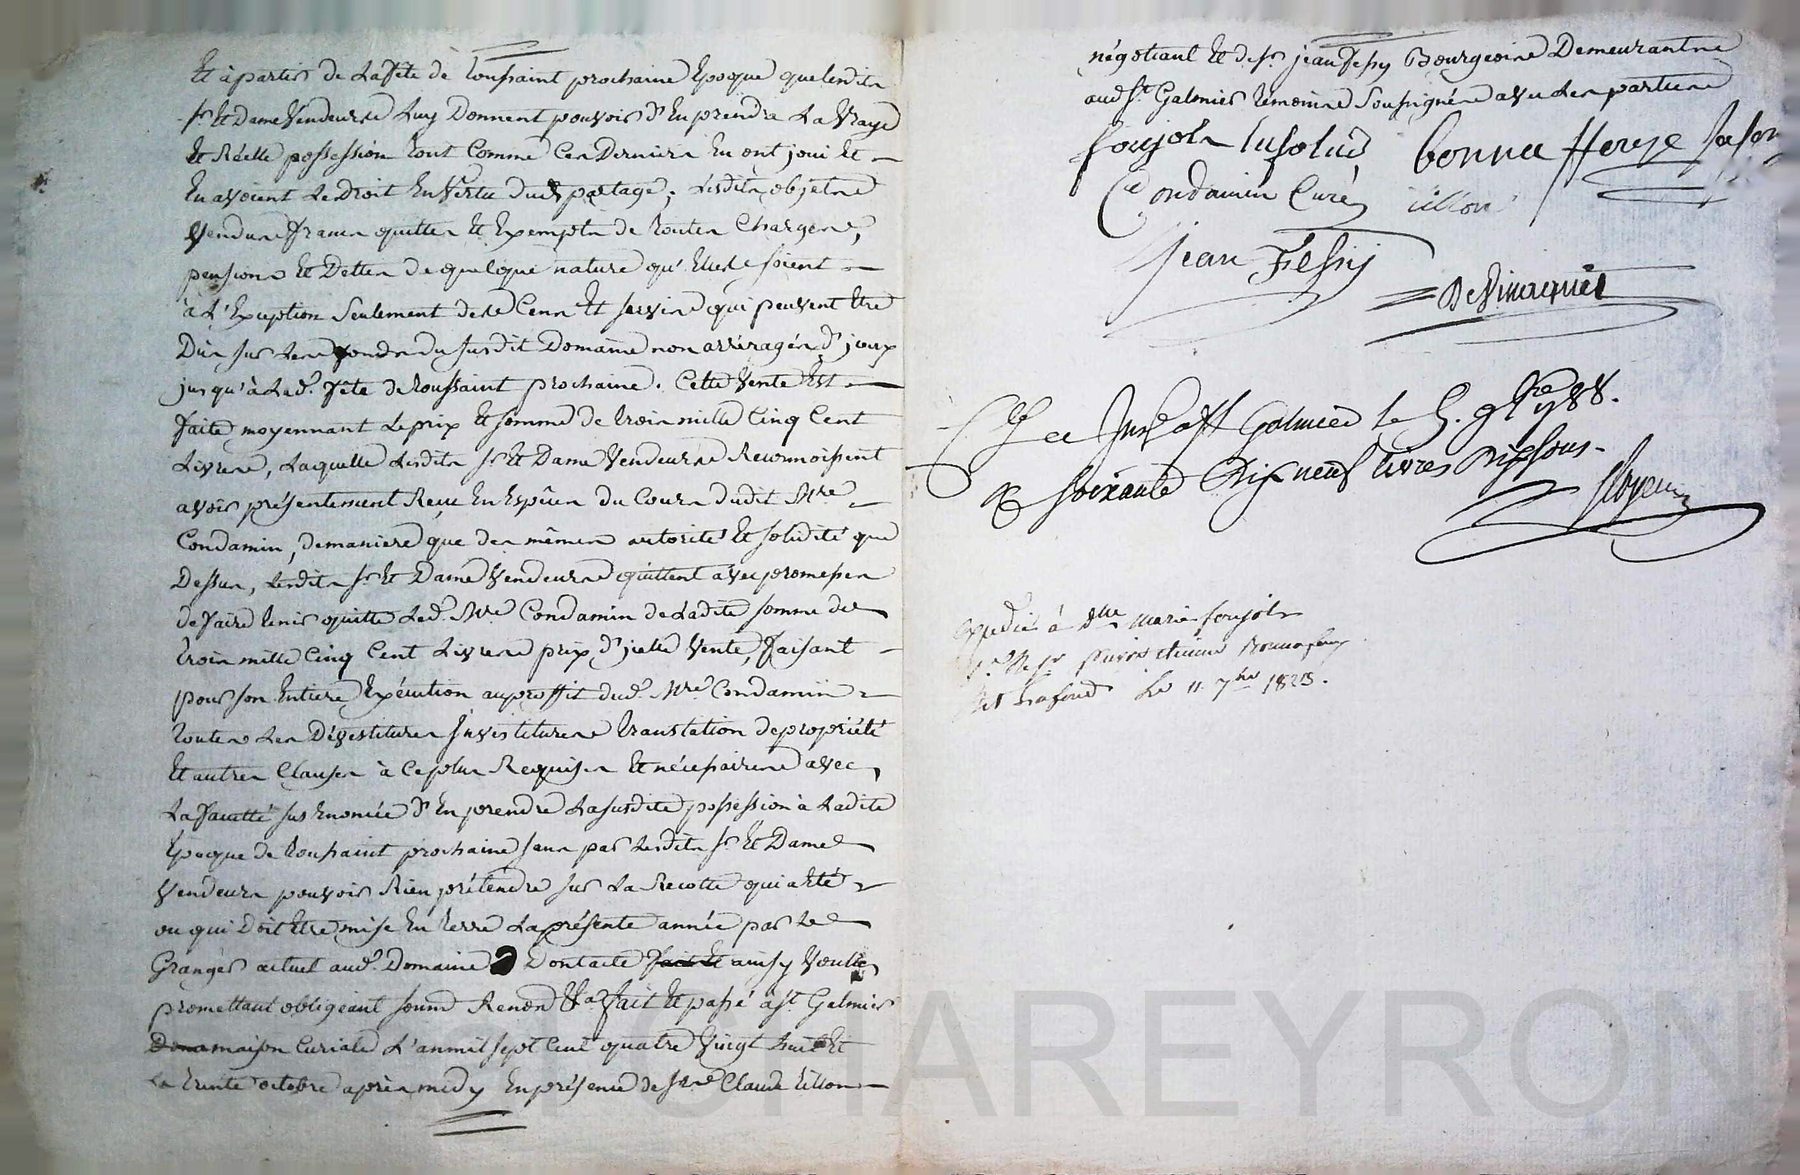 Et à partir de La fête de toussaint prochaine Epoque que lesdits
sr. Et Dame Vendeurs Luy Donnent pouvoir d'En prendre La Vraye
Et Réelle possession tout Comme Ces Derniers En ont joui Et
En avoient Le Droit En Vertu dud. partage; Lesdits objets
Vendus francs quittes Et Exempts de toutes Charges,
pensions Et Dettes de quelque nature qu'Elles soient
à L'Exception Seulement des Cens Et servis qui peuvent Etre
Dûs sur Les fonds du susdit Domaine non arréragés d'jceux
jusqu'à Lad. fête de toussaint prochaine. Cette Vente Est
faite moyennant Le prix Et somme de trois mille Cinq Cent
Livres, Laquelle Lesdits sr. Et Dame Vendeurs Reconnoissent
avoir présentement Reçue En Espèces du Cours dudit Mre.
Condamin, de maniere que des mêmes autorité Et solidité que
Dessus, Lesdits sr. Et Dame Vendeurs quittent avec promesses
de faire tenir quitte Led. Mre. Condamin de Ladite somme de
trois mille Cinq Cent Livres prix d'jcelle Vente, faisant
pour son Entiere Exécution au proffit dud. Mre. Condamin
toutes Les Dévestitures Jnvestitures translation de propriété
Et autres Clauses à Ce plus Requises Et nécessaires avec
La faculté sus Enoncée d'En prendre La susdite possession à Ladite
Epoque de toussaint prochaine sans par Lesdits sr. Et Dame
Vendeurs pouvoir Rien prétendre sur La Recolte qui a Eté
ou qui Doit Etre mise En terre La présente année par Le
Granger actuel aud. Domaine Dont acte fait Et ainsy Voulu
promettant obligeant soum Renon &a. fait Et passé à st. Galmier
Dans maison Curiale L'an mil sept Cent quatre Vingt huit Et
Le trente octobre après midy En présence de sr. Claude tillon
négotiant Et de sr. jean fessy Bourgeois Demeurants
aud. st. Galmier temoins Soussignés avec Les parties
foujols
Condamin Curé tillon
jean Fessy
a st Galmier le
soixante Dix neuf livres Dix sous
Expedié à dlle marie foujols
Le 11 7bre 1823.
CHAREYRON